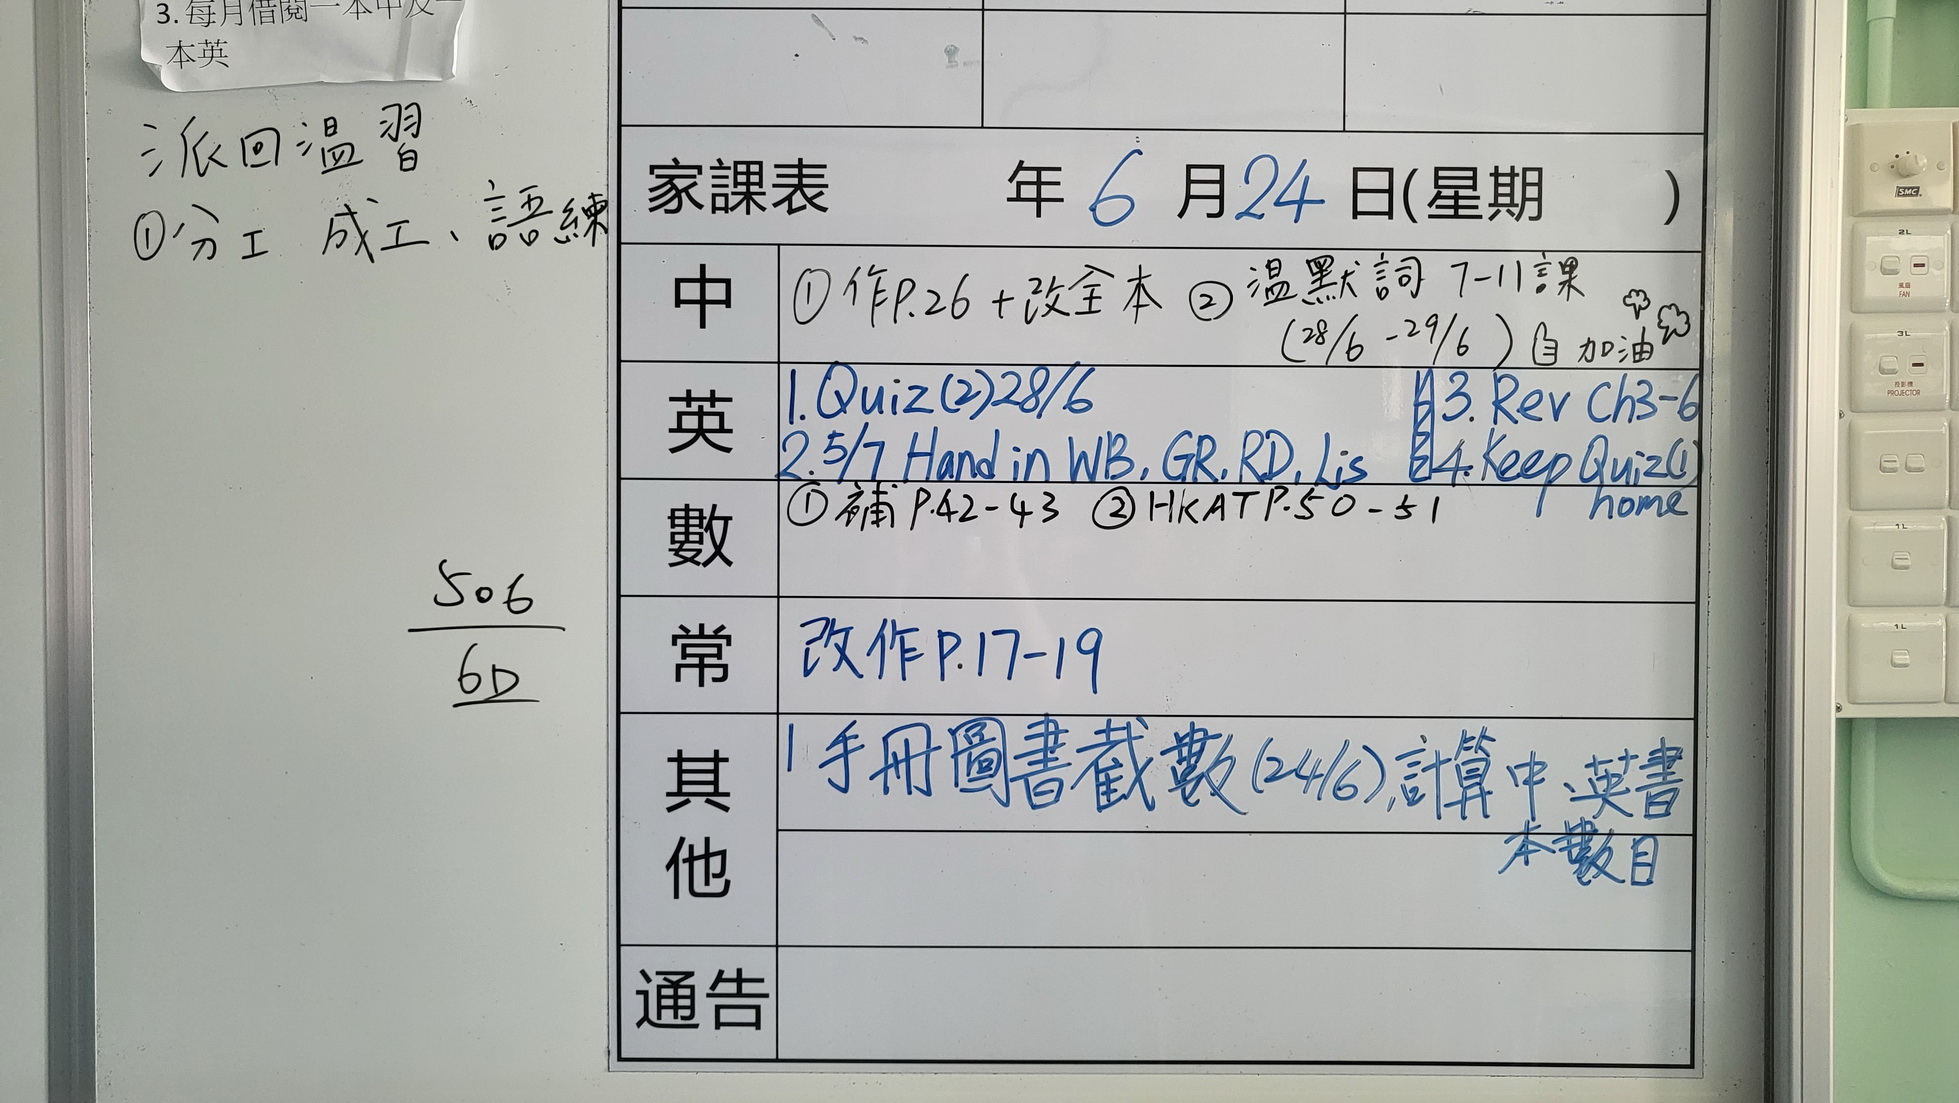 3. 每月借閱一本中及一
本英
派回溫習
①分工 成工、語練
506
6D
家課表 年 6 月 24 日(星期 )
中 ①作P.26 + 改全本 ②溫默詞 7-11課
(28/6 - 29/6) 自 加油
英 1. Quiz(2) 28/6 3. Rev Ch3-6
2. 5/7 Hand in WB, GR, RD, Lis 4. Keep Quiz(1)
home
數 ①補P.42-43 ②HKAT P.50-51
常 改作P.17-19
其他 1 手冊圖書截數(24/6),計算中、英書
本數目
通告
SMC
2L
風扇
FAN
3L
投影機
PROJECTOR
1L
1L